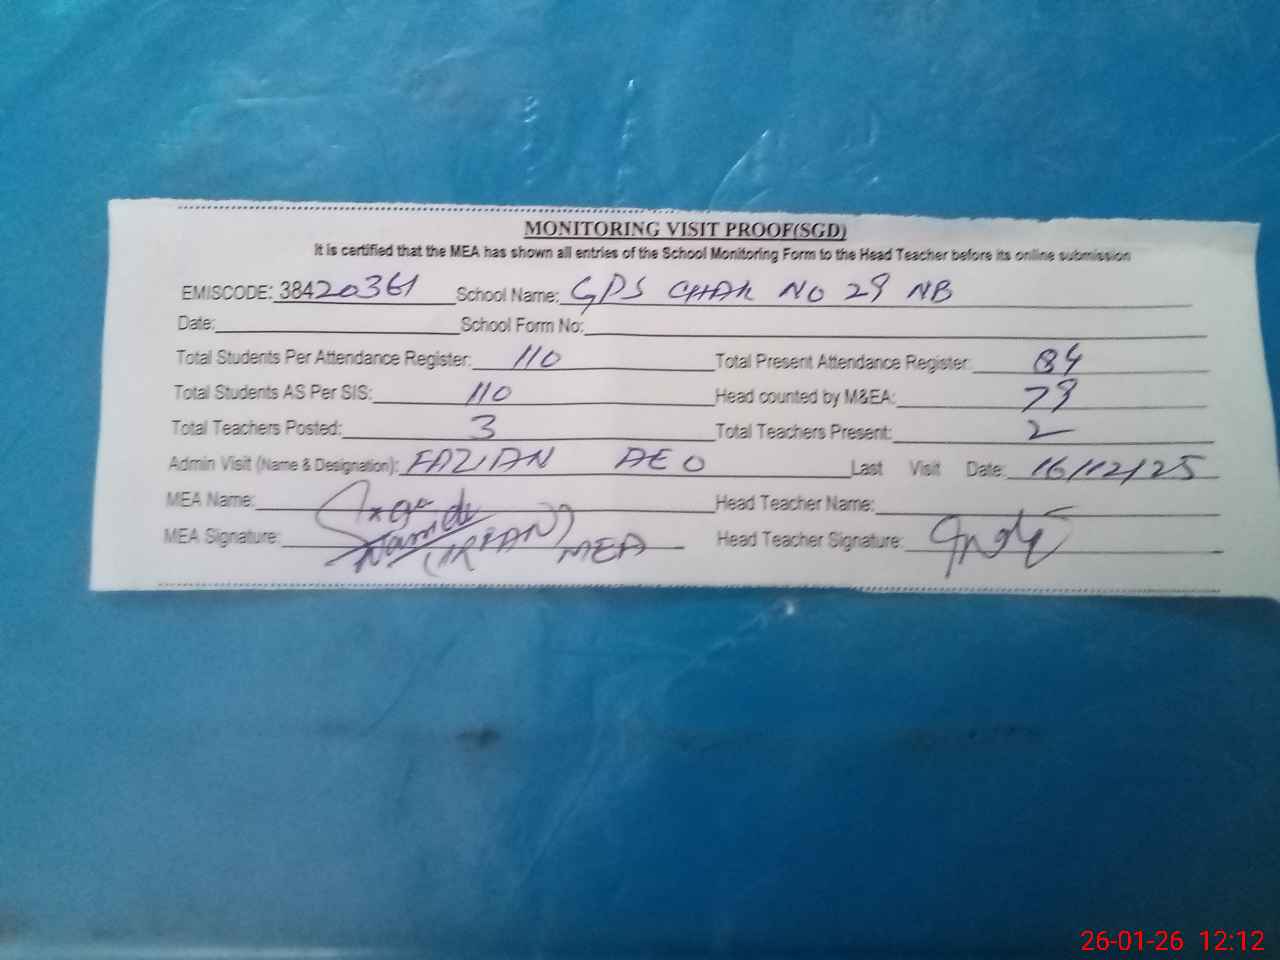 MONITORING VISIT PROOF(SGD)
It is certified that the MEA has shown all entries of the School Monitoring Form to the Head Teacher before its online submission
EMISCODE: 38420361 School Name: GPS CHAK NO 29 NB
Date: School Form No:
Total Students Per Attendance Register: 110 Total Present Attendance Register: 84
Total Students AS Per SIS: 110 Head counted by M&EA: 79
Total Teachers Posted: 3 Total Teachers Present: 2
Admin Visit (Name & Designation): FAZIAN AEO Last Visit Date: 16/12/25
MEA Name: Head Teacher Name:
MEA Signature: (IRFAN) MEA Head Teacher Signature:
26-01-26 12:12